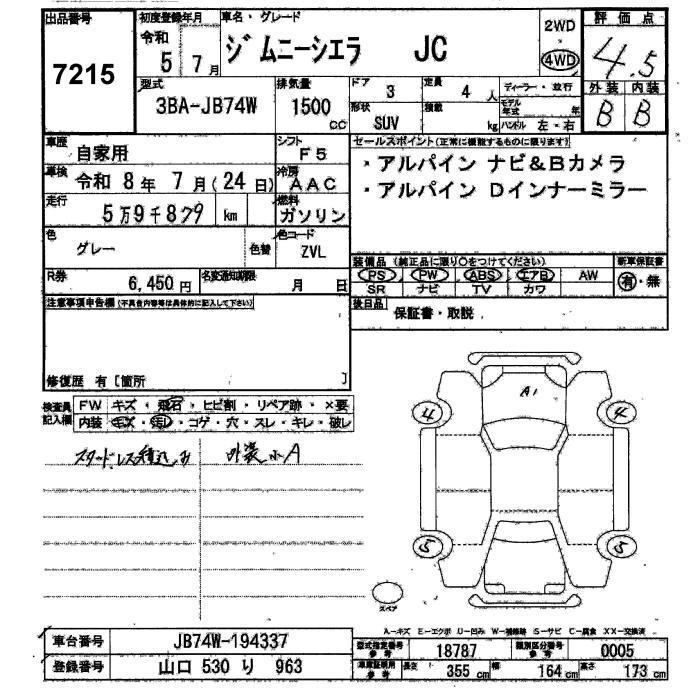 出品番号 初度登録年月 車名・グレード 2WD 評価点
7215 令和 5 7月 ジムニーシエラ JC 4WD 4.5
型式 排気量 ドア 3 定員 4人 ディーラー・並行 外装 内装
3BA-JB74W 1500cc 形状 SUV 積載 kg モデル年式 年 ハンドル 左・右 B B
車歴 自家用 シフト F5 セールスポイント(正常に機能するものに限ります)
車検 令和 8年 7月(24日) 冷房 AAC ・アルパイン ナビ&Bカメラ
走行 5万9千879 km 燃料 ガソリン ・アルパイン Dインナーミラー
色 グレー 色替 色コード ZVL
装備品(純正品に限り○をつけてください) 新車保証書
R券 6,450円 名変通知期限 月 日 PS PW ABS エアB AW 有・無
SR ナビ TV カワ
注意事項申告欄(不具合内容等は具体的に記入して下さい) 後日品 保証書・取説
修復歴 有〔箇所 〕
検査員記入欄 FW キズ・飛石・ヒビ割・リペア跡・×要
内装 キズ・汚レ・コゲ・穴・スレ・キレ・破レ
スタッドレス積込み 外装小A
A1
4 4
5 5
スペア
A-キズ E-エクボ U-凹み W-補修跡 S-サビ C-腐食 XX-交換済
車台番号 JB74W-194337 型式指定番号 参考 18787 類別区分番号 参考 0005
登録番号 山口 530 り 963 車庫証明用 参考 長さ 355cm 幅 164cm 高さ 173cm